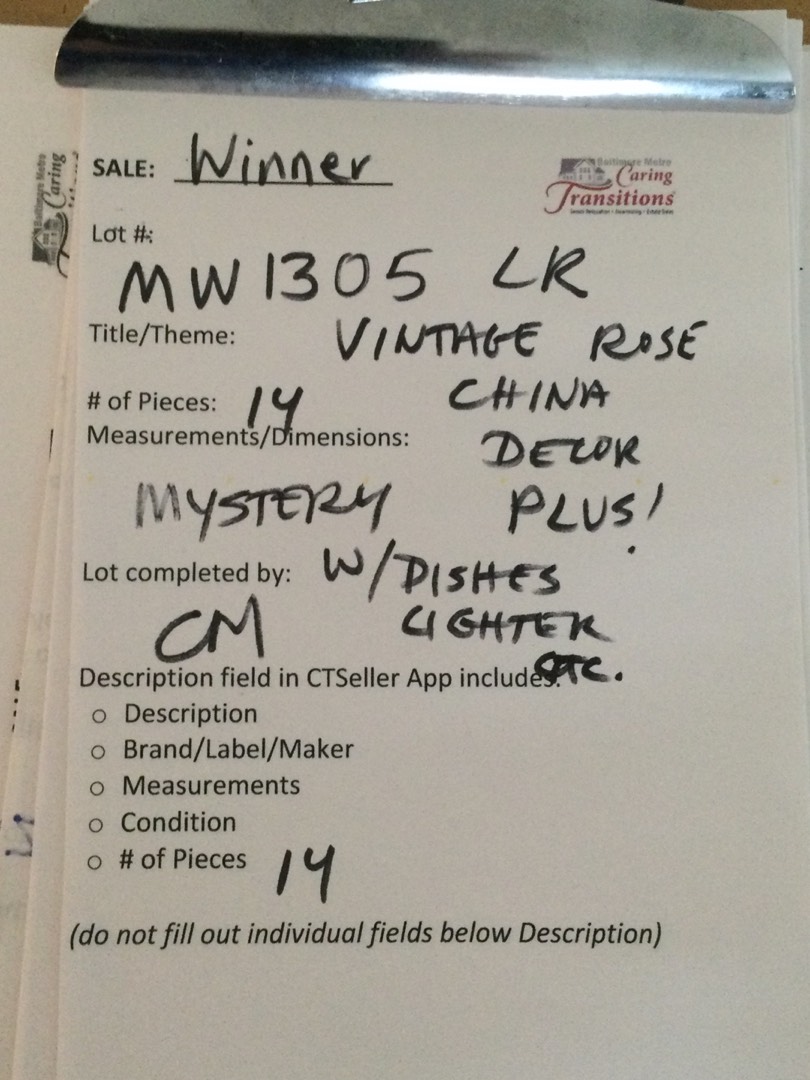 SALE: Winner
Baltimore Metro
Caring
Transitions
Lot #:
MW1305 LR
Title/Theme: VINTAGE ROSE
# of Pieces: 14 CHINA
Measurements/Dimensions: DECOR
MYSTERY PLUS!
Lot completed by: W/DISHES
CM LIGHTER
ETC.
Description field in CTSeller App includes:
o Description
o Brand/Label/Maker
o Measurements
o Condition
o # of Pieces 14
(do not fill out individual fields below Description)
Baltimore Metro
Caring